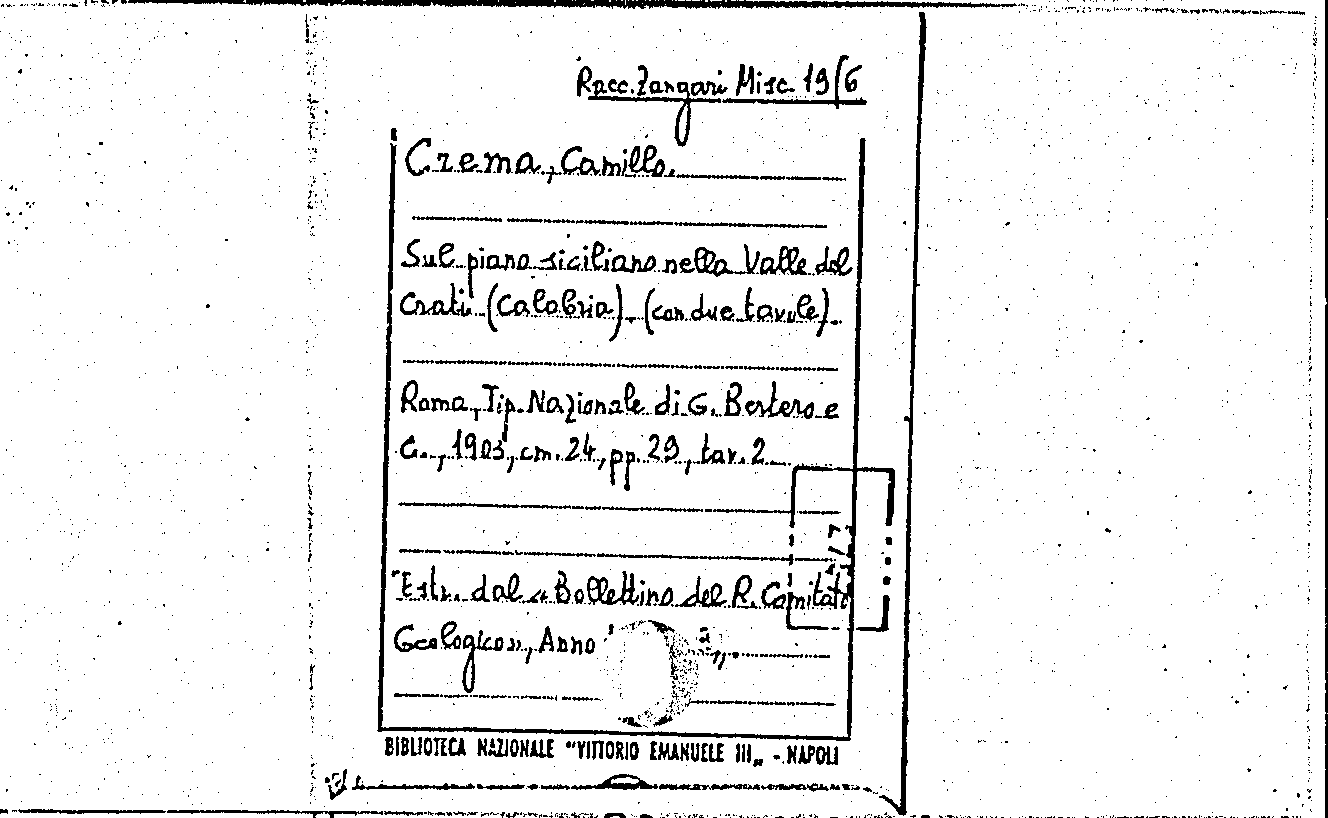 Racc. Zangari Misc. 19/6
Crema, Camillo.
Sul piano siciliano nella Valle del
Crati (Calabria). (con due tavole).
Roma, Tip. Nazionale di G. Bertero e
C., 1903, cm. 24, pp. 29, tav. 2
"Estr. dal « Bollettino del R. Comitato
Geologico», Anno
BIBLIOTECA NAZIONALE "VITTORIO EMANUELE III„ - NAPOLI